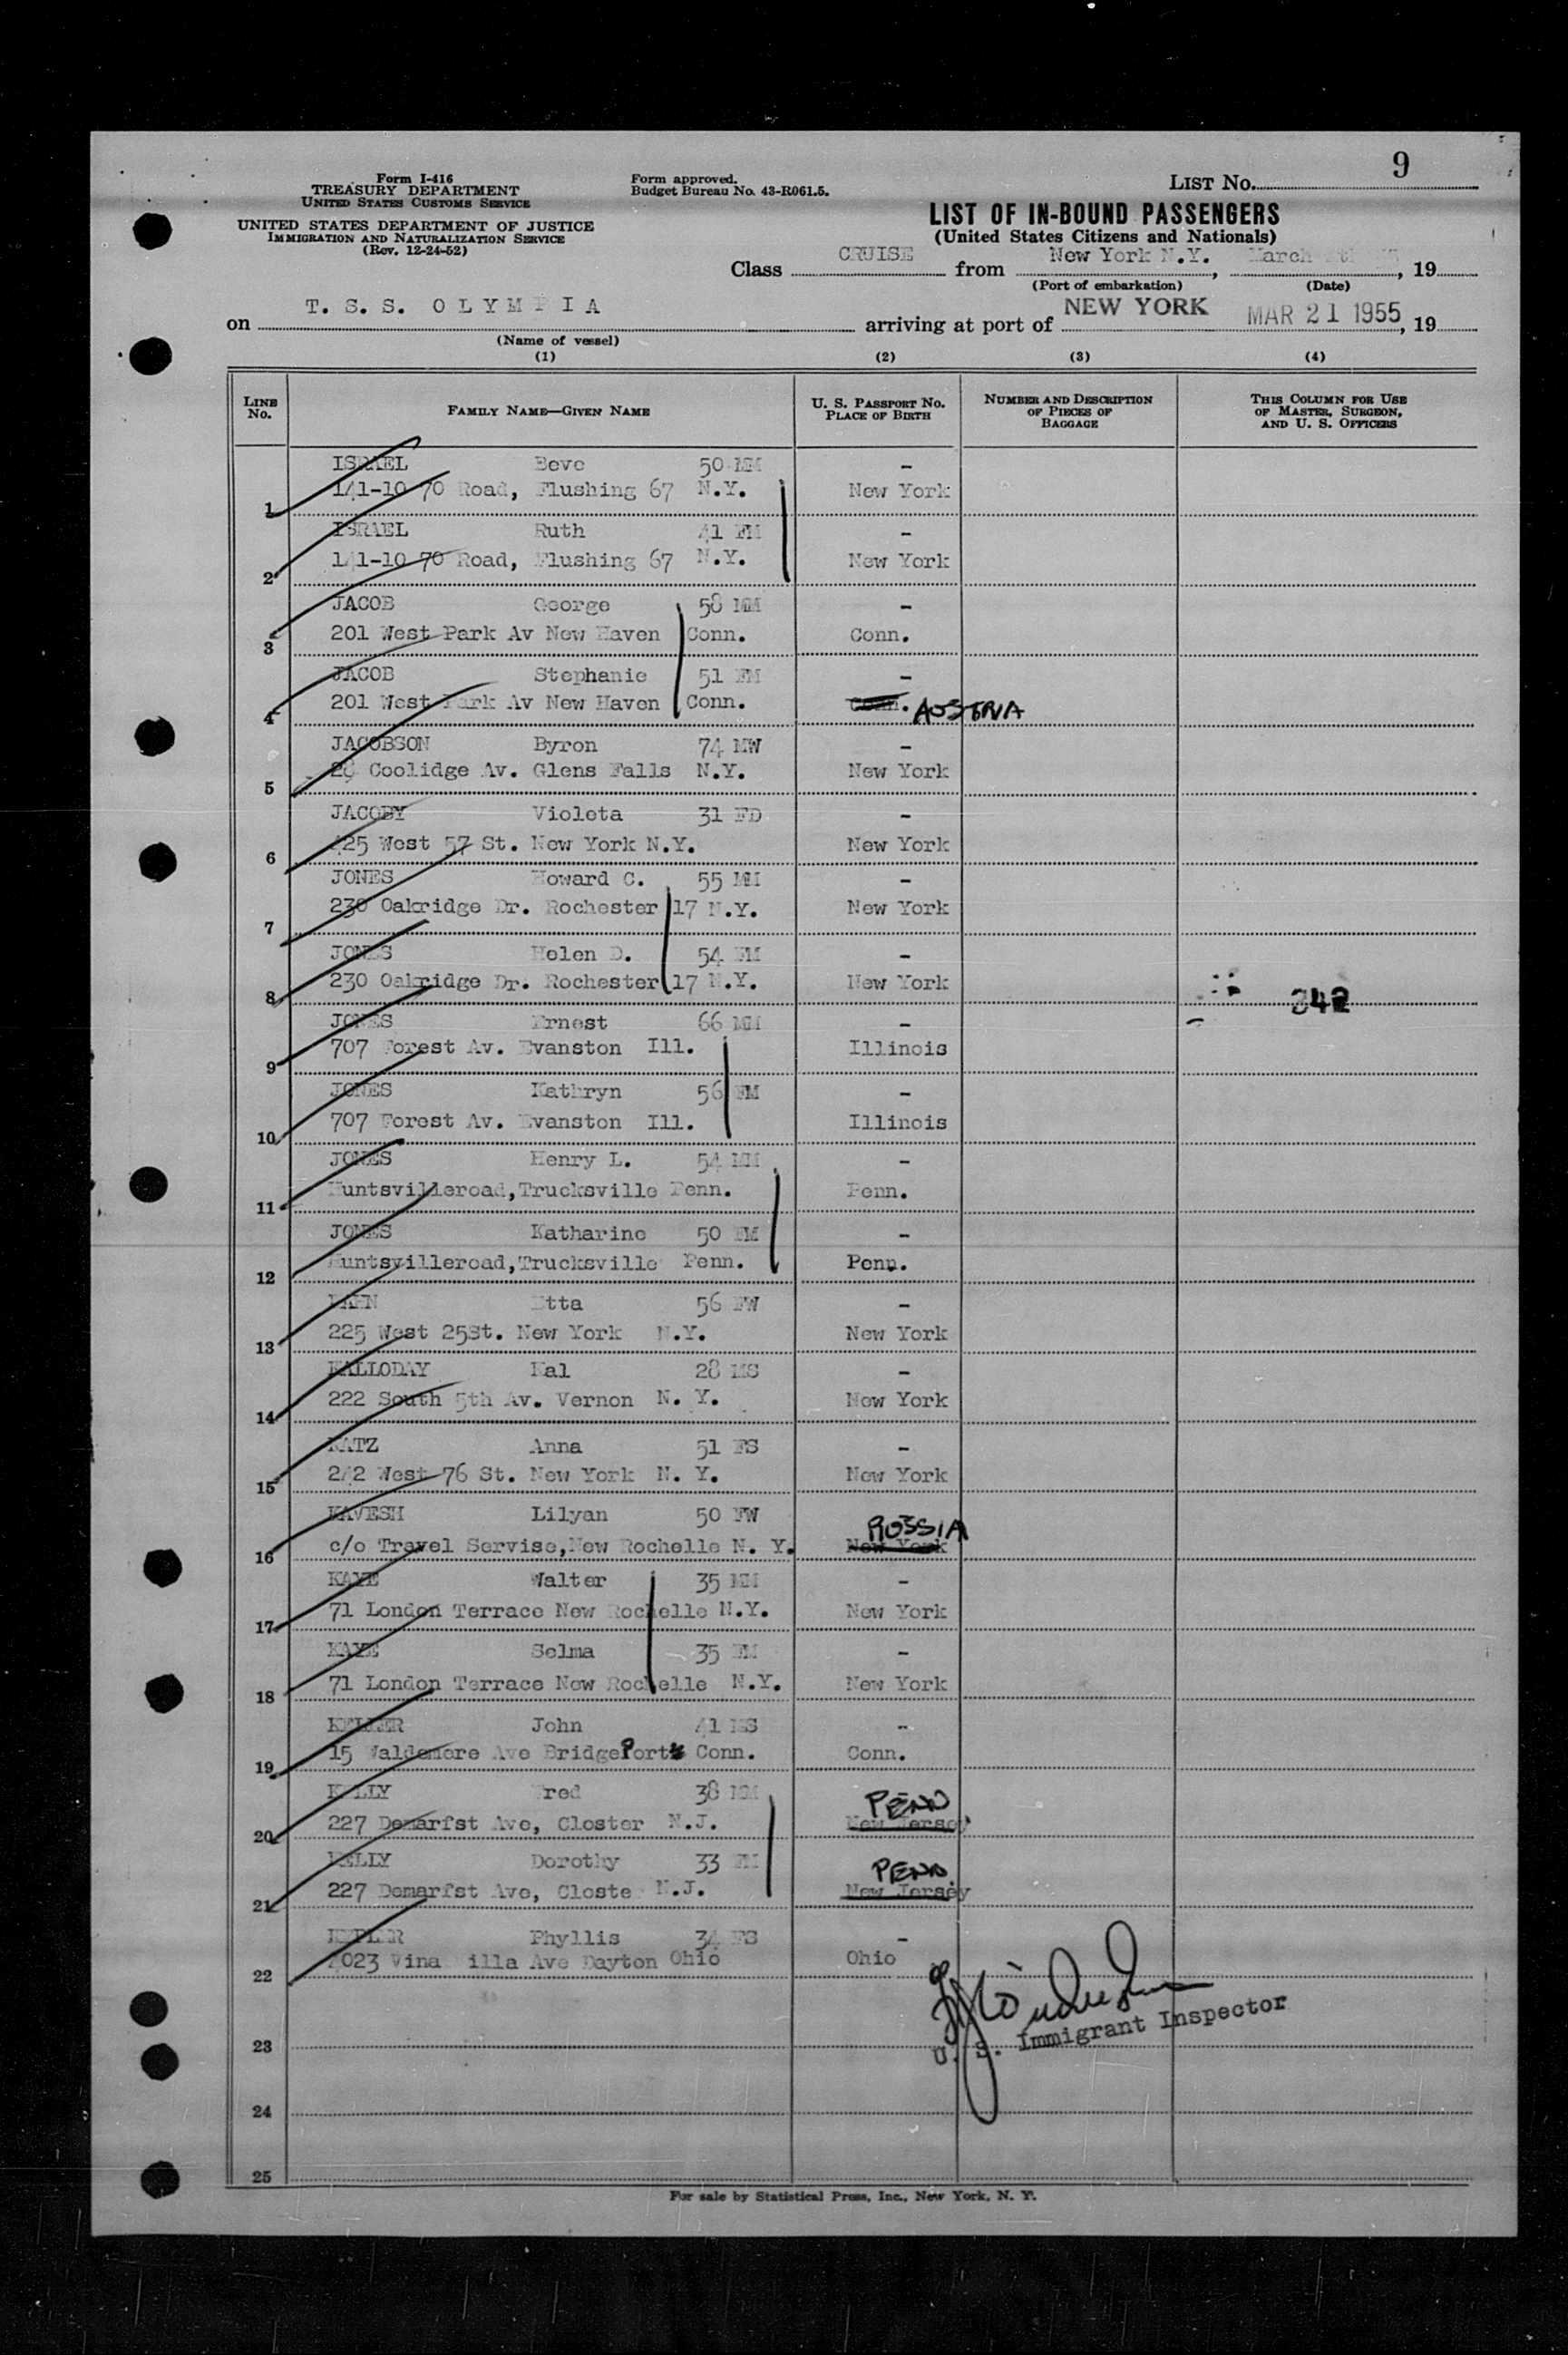 Form I-416
TREASURY DEPARTMENT
UNITED STATES CUSTOMS SERVICE
UNITED STATES DEPARTMENT OF JUSTICE
IMMIGRATION AND NATURALIZATION SERVICE
(Rev. 12-24-52)
Form approved.
Budget Bureau No. 43-R061.5.
LIST No. 9
LIST OF IN-BOUND PASSENGERS
(United States Citizens and Nationals)
Class CRUISE from New York N.Y., March, 19
(Port of embarkation) (Date)
on T. S. S. OLYMPIA arriving at port of NEW YORK MAR 21 1955, 19
(Name of vessel)
(1) (2) (3) (4)
LINE No. FAMILY NAME—GIVEN NAME U. S. PASSPORT No. PLACE OF BIRTH NUMBER AND DESCRIPTION OF PIECES OF BAGGAGE THIS COLUMN FOR USE OF MASTER, SURGEON, AND U. S. OFFICERS
ISRAEL Beve 50 MM -
1 141-10 70 Road, Flushing 67 N.Y. New York
ISRAEL Ruth 41 FM -
2 141-10 70 Road, Flushing 67 N.Y. New York
JACOB George 58 MM -
3 201 West Park Av New Haven Conn. Conn.
JACOB Stephanie 51 FM -
4 201 West Park Av New Haven Conn. Conn. AUSTRIA
JACOBSON Byron 74 MW -
5 28 Coolidge Av. Glens Falls N.Y. New York
JACOBY Violeta 31 FD -
6 425 West 57 St. New York N.Y. New York
JONES Howard C. 55 MM -
7 230 Oakridge Dr. Rochester 17 N.Y. New York
JONES Helen D. 54 FM -
8 230 Oakridge Dr. Rochester 17 N.Y. New York 342
JONES Ernest 66 MM -
9 707 Forest Av. Evanston Ill. Illinois
JONES Kathryn 56 FM -
10 707 Forest Av. Evanston Ill. Illinois
JONES Henry L. 54 MM -
11 Huntsvilleroad,Trucksville Penn. Penn.
JONES Katharine 50 FM -
12 Huntsvilleroad,Trucksville Penn. Penn.
Etta 56 FW -
13 225 West 25St. New York N.Y. New York
KALLODAY Kal 28 MS -
14 222 South 5th Av. Vernon N. Y. New York
KATZ Anna 51 FS -
15 242 West 76 St. New York N. Y. New York
KAVESH Lilyan 50 FW RUSSIA
16 c/o Travel Servise,New Rochelle N. Y. New York
KAYE Walter 35 MM -
17 71 London Terrace New Rochelle N.Y. New York
KAYE Selma 35 FM -
18 71 London Terrace New Rochelle N.Y. New York
KELLER John 41 MS -
19 15 Waldemere Ave BridgePort Conn. Conn.
KELLY Fred 38 MM PENN
20 227 Demarfst Ave, Closter N.J. New Jersey
KELLY Dorothy 33 FM PENN.
21 227 Demarfst Ave, Closte N.J. New Jersey
Phyllis 34 FS -
22 4023 Vina illa Ave Dayton Ohio Ohio
U. S. Immigrant Inspector
23
24
25
For sale by Statistical Press, Inc., New York, N. Y.